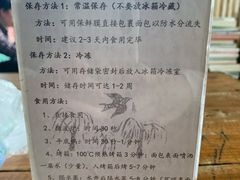 保存方法1：常温保存（不要放冰箱冷藏）
方法：可用保鲜膜直接包裹面包以防水分流失
时间：建议2-3天内食用完毕
保存方法2：冷冻
方法：可用存储袋密封后放入冰箱冷冻室
时间：储存时间可达1-2周
食用方法：
时间30秒
时间
4、烤箱：100℃预热烤箱3分钟：面包表面喷洒
一点水（少量），入烤箱烤5-7分钟
5-7分钟